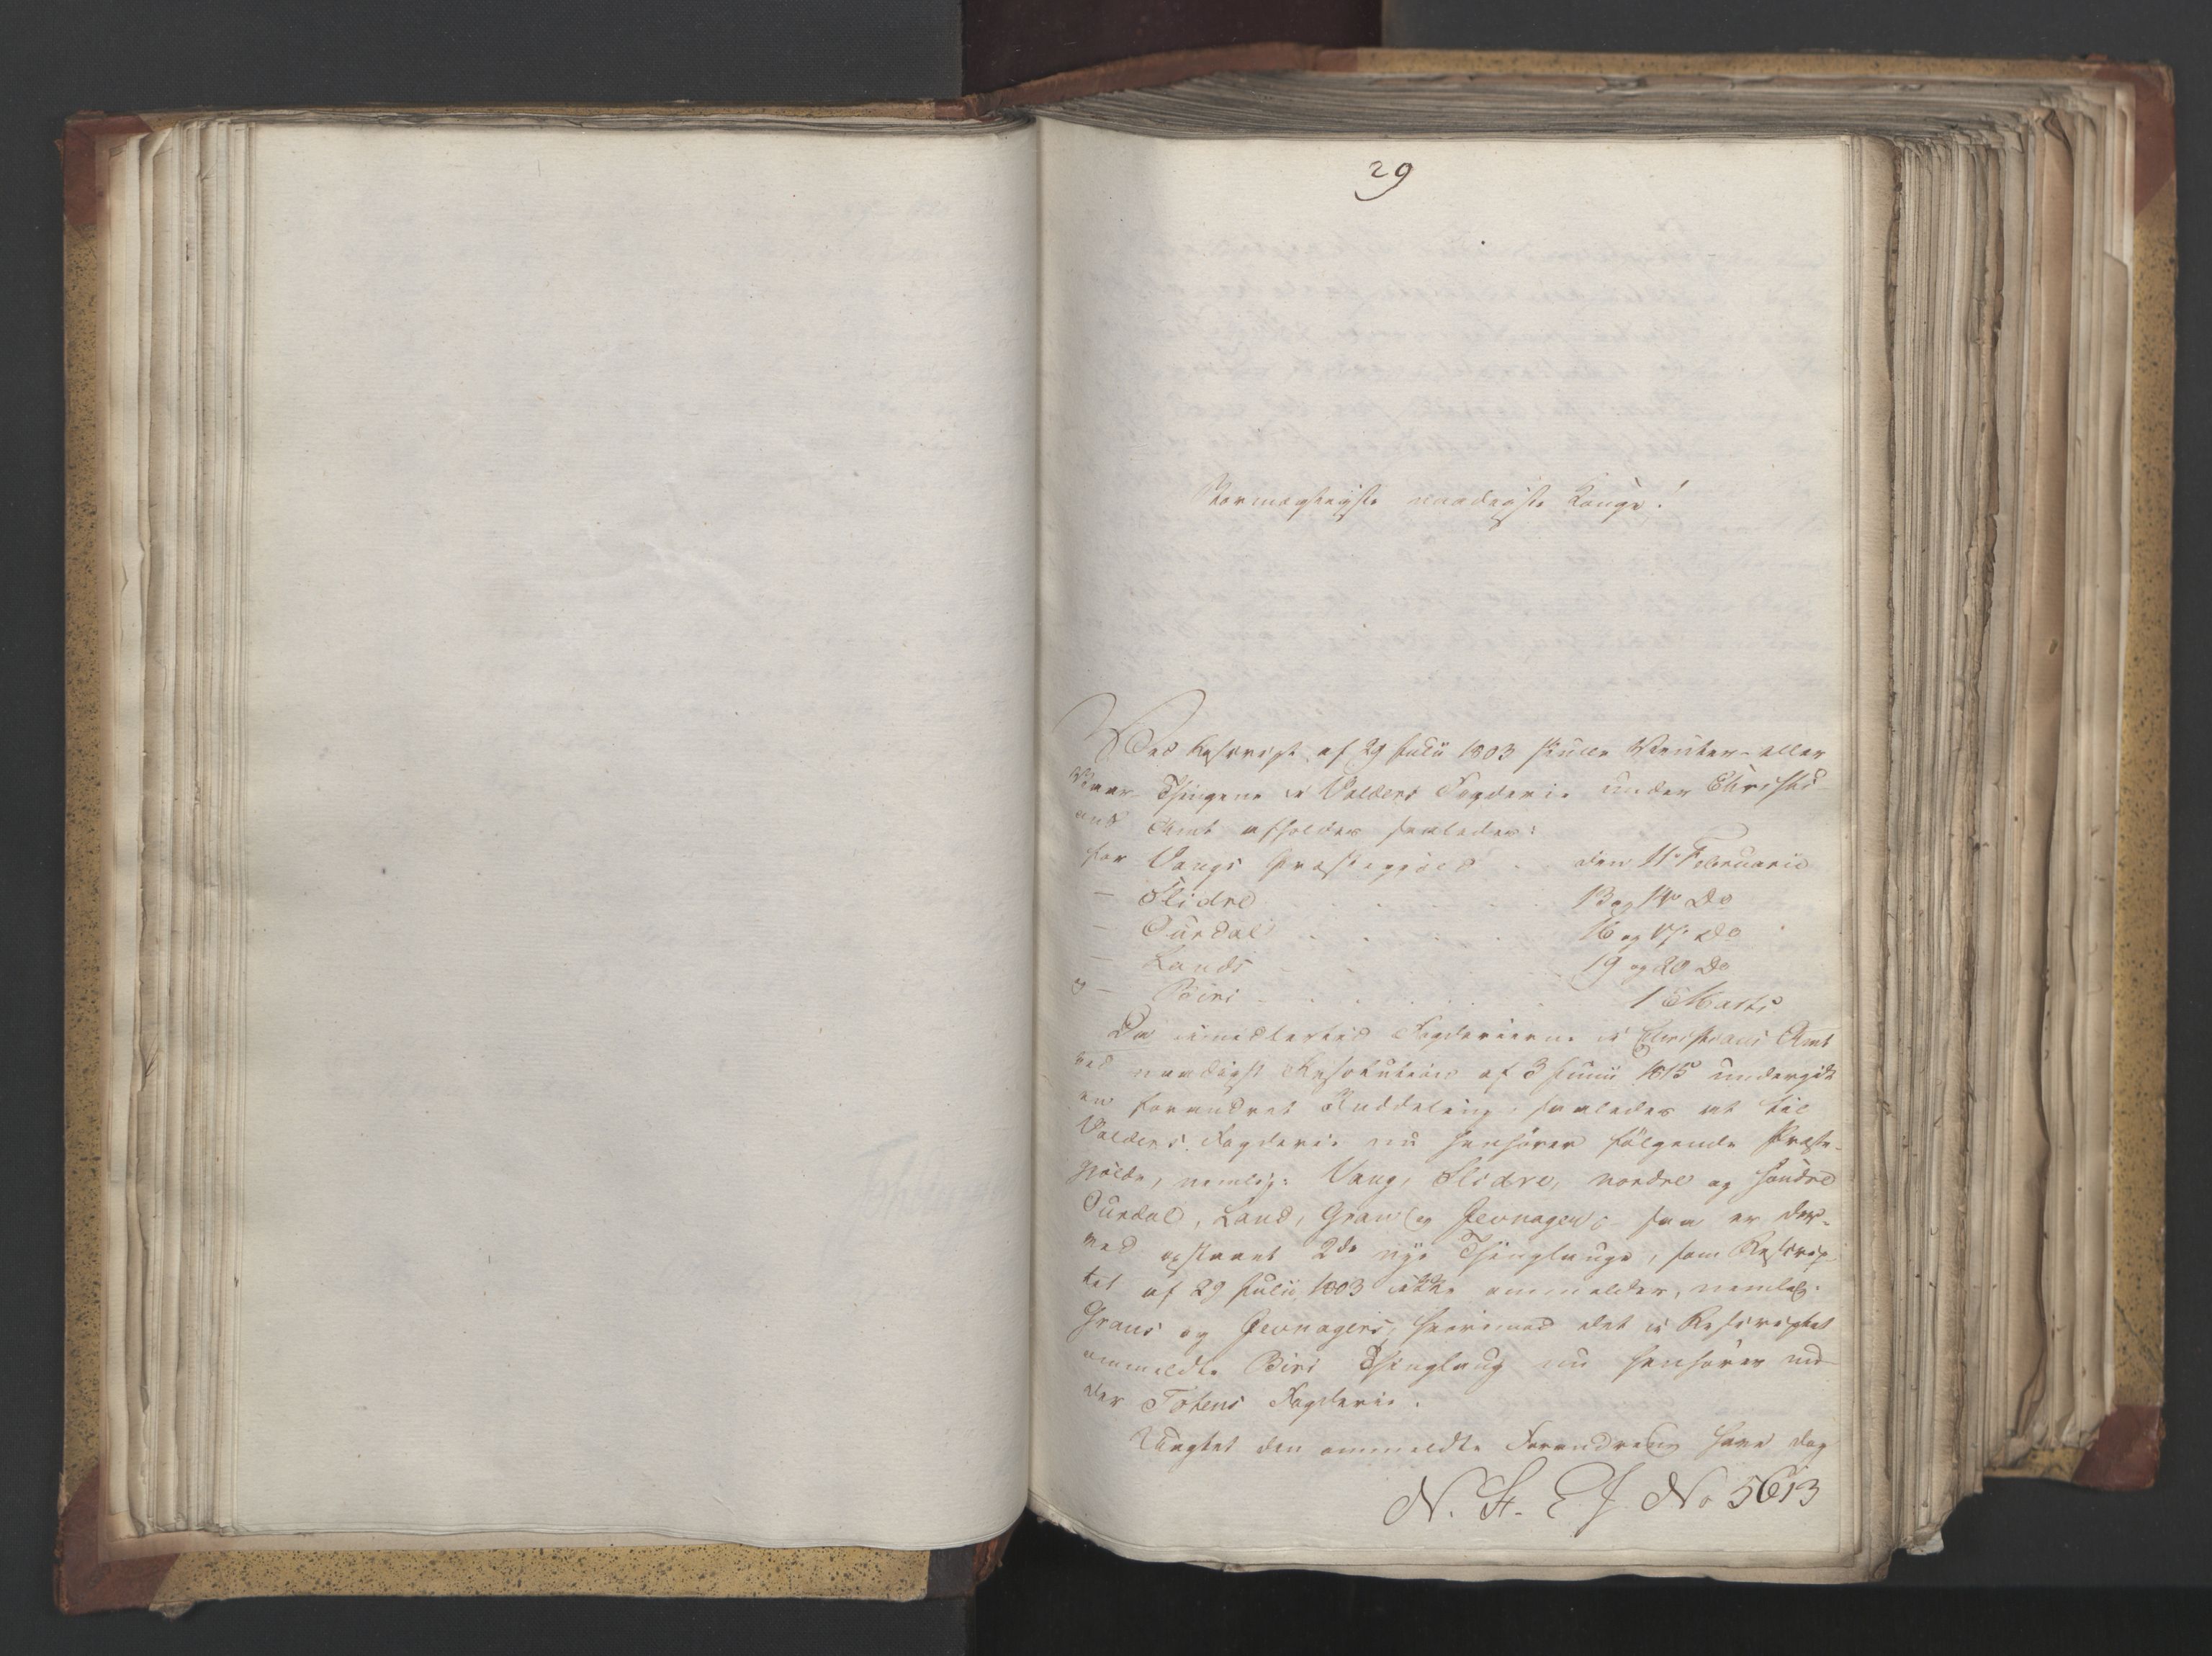 29
Stormægtigste naadigste Konge!
Ved Rescript af 29 Julii 1803 skulle Vinter- eller
Vaar-Thingene i Valders Fogderie under Christi-
ans Amt afholdes saaledes:
for Vangs Præstegjeld . den 11 Februarii
— Slidre . . . . . 13 og 14 Do
— Ourdal . . . . . 16 og 17 Do
— Lands . . . . 19 og 20 Do
og — Biri . . . . . . 1 Marts
Da imidlertid Fogderierne i Christians Amt
ved naadigst Resolution af 3 Junii 1815 undergik
en forandret Inddeling, saaledes at til
Valders Fogderie nu henhører følgende Præste-
gjelde, nemlig: Vang, Slidre, nordre og søndre
Ourdal, Land, Gran og Jevnager; saa er der-
ved opstaaet 2de nye Thinglauge, som Rescrip-
tet af 29 Julii 1803 ikke ommelder, nemlig:
Grans og Jevnagers, hvorimod det i Rescriptet
ommeldte Biri Thinglaug nu henhører un-
der Totens Fogderie.
Uagtet den ommeldte Forandring have dog
N. St. E. J. No 5613